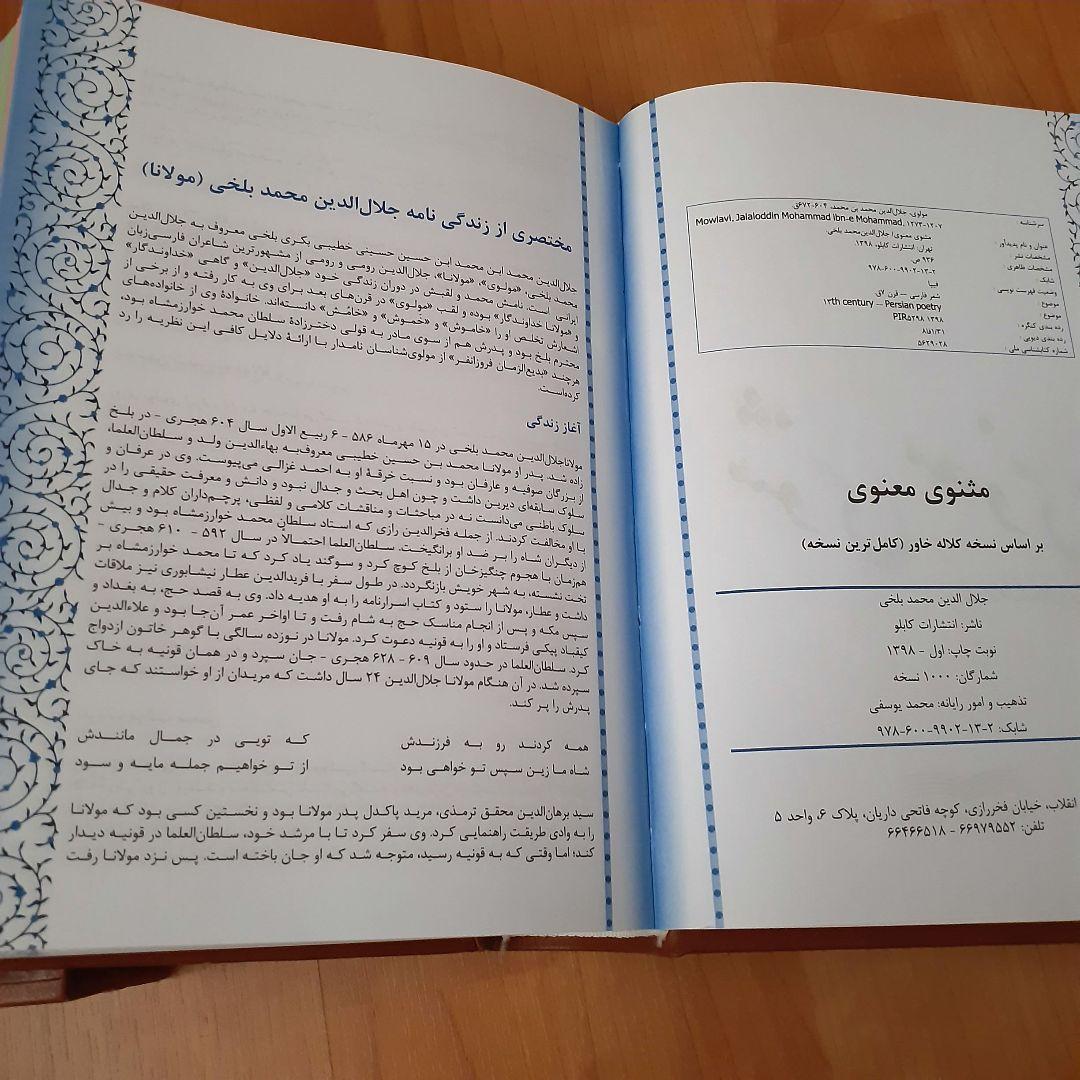 سرشناسه : مولوی، جلال‌الدین محمد بن محمد، ۶۰۴-۶۷۲ق.
Mowlavi, Jalaloddin Mohammad ibn-e Mohammad, ۱۲۷۳-۱۲۰۷
عنوان و نام پدیدآور : مثنوی معنوی/ جلال‌الدین‌محمد بلخی.
مشخصات نشر : تهران: انتشارات کابلو، ۱۳۹۸.
مشخصات ظاهری : ۹۳۶ ص.
شابک : ۹۷۸-۶۰۰-۹۹۰۲-۱۳-۲
وضعیت فهرست نویسی : فیپا
موضوع : شعر فارسی — قرن ۷ق.
موضوع : ۱۳th century — Persian poetry
رده بندی کنگره : PIR۵۲۹۸ ۱۳۹۸
رده بندی دیویی : ۸۵۱/۳۱
شماره کتابشناسی ملی : ۵۶۲۹۰۲۸
مثنوی معنوی
بر اساس نسخه کلاله خاور (کامل‌ترین نسخه)
جلال الدین محمد بلخی
ناشر: انتشارات کابلو
نوبت چاپ: اول - ۱۳۹۸
شمارگان: ۱۰۰۰ نسخه
تذهیب و امور رایانه: محمد یوسفی
شابک: ۲-۱۳-۹۹۰۲-۶۰۰-۹۷۸
انقلاب، خیابان فخررازی، کوچه فاتحی داریان، پلاک ۶، واحد ۵
تلفن: ۶۶۹۷۹۵۵۲ - ۶۶۴۶۶۵۱۸
مختصری از زندگی نامه جلال‌الدین محمد بلخی (مولانا)
جلال‌الدین محمد ابن محمد ابن حسین حسینی خطیبی بکری بلخی معروف به جلال‌الدین
محمد بلخی، «مولوی»، «مولانا»، جلال‌الدین رومی و رومی از مشهورترین شاعران فارسی‌زبان
ایرانی است. نامش محمد و لقبش در دوران زندگی خود «جلال‌الدین» و گاهی «خداوندگار»
و «مولانا خداوندگار» بوده و لقب «مولوی» در قرن‌های بعد برای وی به کار رفته و از برخی از
اشعارش تخلص او را «خاموش» و «خموش» و «خامُش» دانسته‌اند. خانوادهٔ وی از خانواده‌های
محترم بلخ بود و پدرش هم از سوی مادر به قولی دخترزادهٔ سلطان محمد خوارزمشاه بود،
هرچند «بدیع‌الزمان فروزانفر» از مولوی‌شناسان نامدار با ارائهٔ دلایل کافی این نظریه را رد
کرده‌است.
آغاز زندگی
مولاناجلال‌الدین محمد بلخی در ۱۵ مهرماه ۵۸۶ - ۶ ربیع الاول سال ۶۰۴ هجری - در بلخ
زاده شد. پدر او مولانا محمد بن حسین خطیبی معروف‌به بهاءالدین ولد و سلطان‌العلما،
از بزرگان صوفیه و عارفان بود و نسبت خرقهٔ او به احمد غزالی می‌پیوست. وی در عرفان و
سلوک سابقه‌ای دیرین داشت و چون اهل بحث و جدال نبود و دانش و معرفت حقیقی را در
سلوک باطنی می‌دانست نه در مباحثات و مناقشات کلامی و لفظی، پرچم‌داران کلام و جدال
با او مخالفت کردند. از جمله فخرالدین رازی که استاد سلطان محمد خوارزمشاه بود و بیش
از دیگران شاه را بر ضد او برانگیخت. سلطان‌العلما احتمالاً در سال ۵۹۲ - ۶۱۰ هجری -
هم‌زمان با هجوم چنگیزخان از بلخ کوچ کرد و سوگند یاد کرد که تا محمد خوارزمشاه بر
تخت نشسته، به شهر خویش بازنگردد. در طول سفر با فریدالدین عطار نیشابوری نیز ملاقات
داشت و عطار، مولانا را ستود و کتاب اسرارنامه را به او هدیه داد. وی به قصد حج، به بغداد و
سپس مکه و پس از انجام مناسک حج به شام رفت و تا اواخر عمر آن‌جا بود و علاءالدین
کیقباد پیکی فرستاد و او را به قونیه دعوت کرد. مولانا در نوزده سالگی با گوهر خاتون ازدواج
کرد. سلطان‌العلما در حدود سال ۶۰۹ - ۶۲۸ هجری - جان سپرد و در همان قونیه به خاک
سپرده شد. در آن هنگام مولانا جلال‌الدین ۲۴ سال داشت که مریدان از او خواستند که جای
پدرش را پر کند.
همه کردند رو به فرزندش که تویی در جمال مانندش
شاه ما زین سپس تو خواهی بود از تو خواهیم جمله مایه و سود
سید برهان‌الدین محقق ترمذی، مرید پاکدل پدر مولانا بود و نخستین کسی بود که مولانا
را به وادی طریقت راهنمایی کرد. وی سفر کرد تا با مرشد خود، سلطان‌العلما در قونیه دیدار
کند؛ اما وقتی که به قونیه رسید، متوجه شد که او جان باخته است. پس نزد مولانا رفت